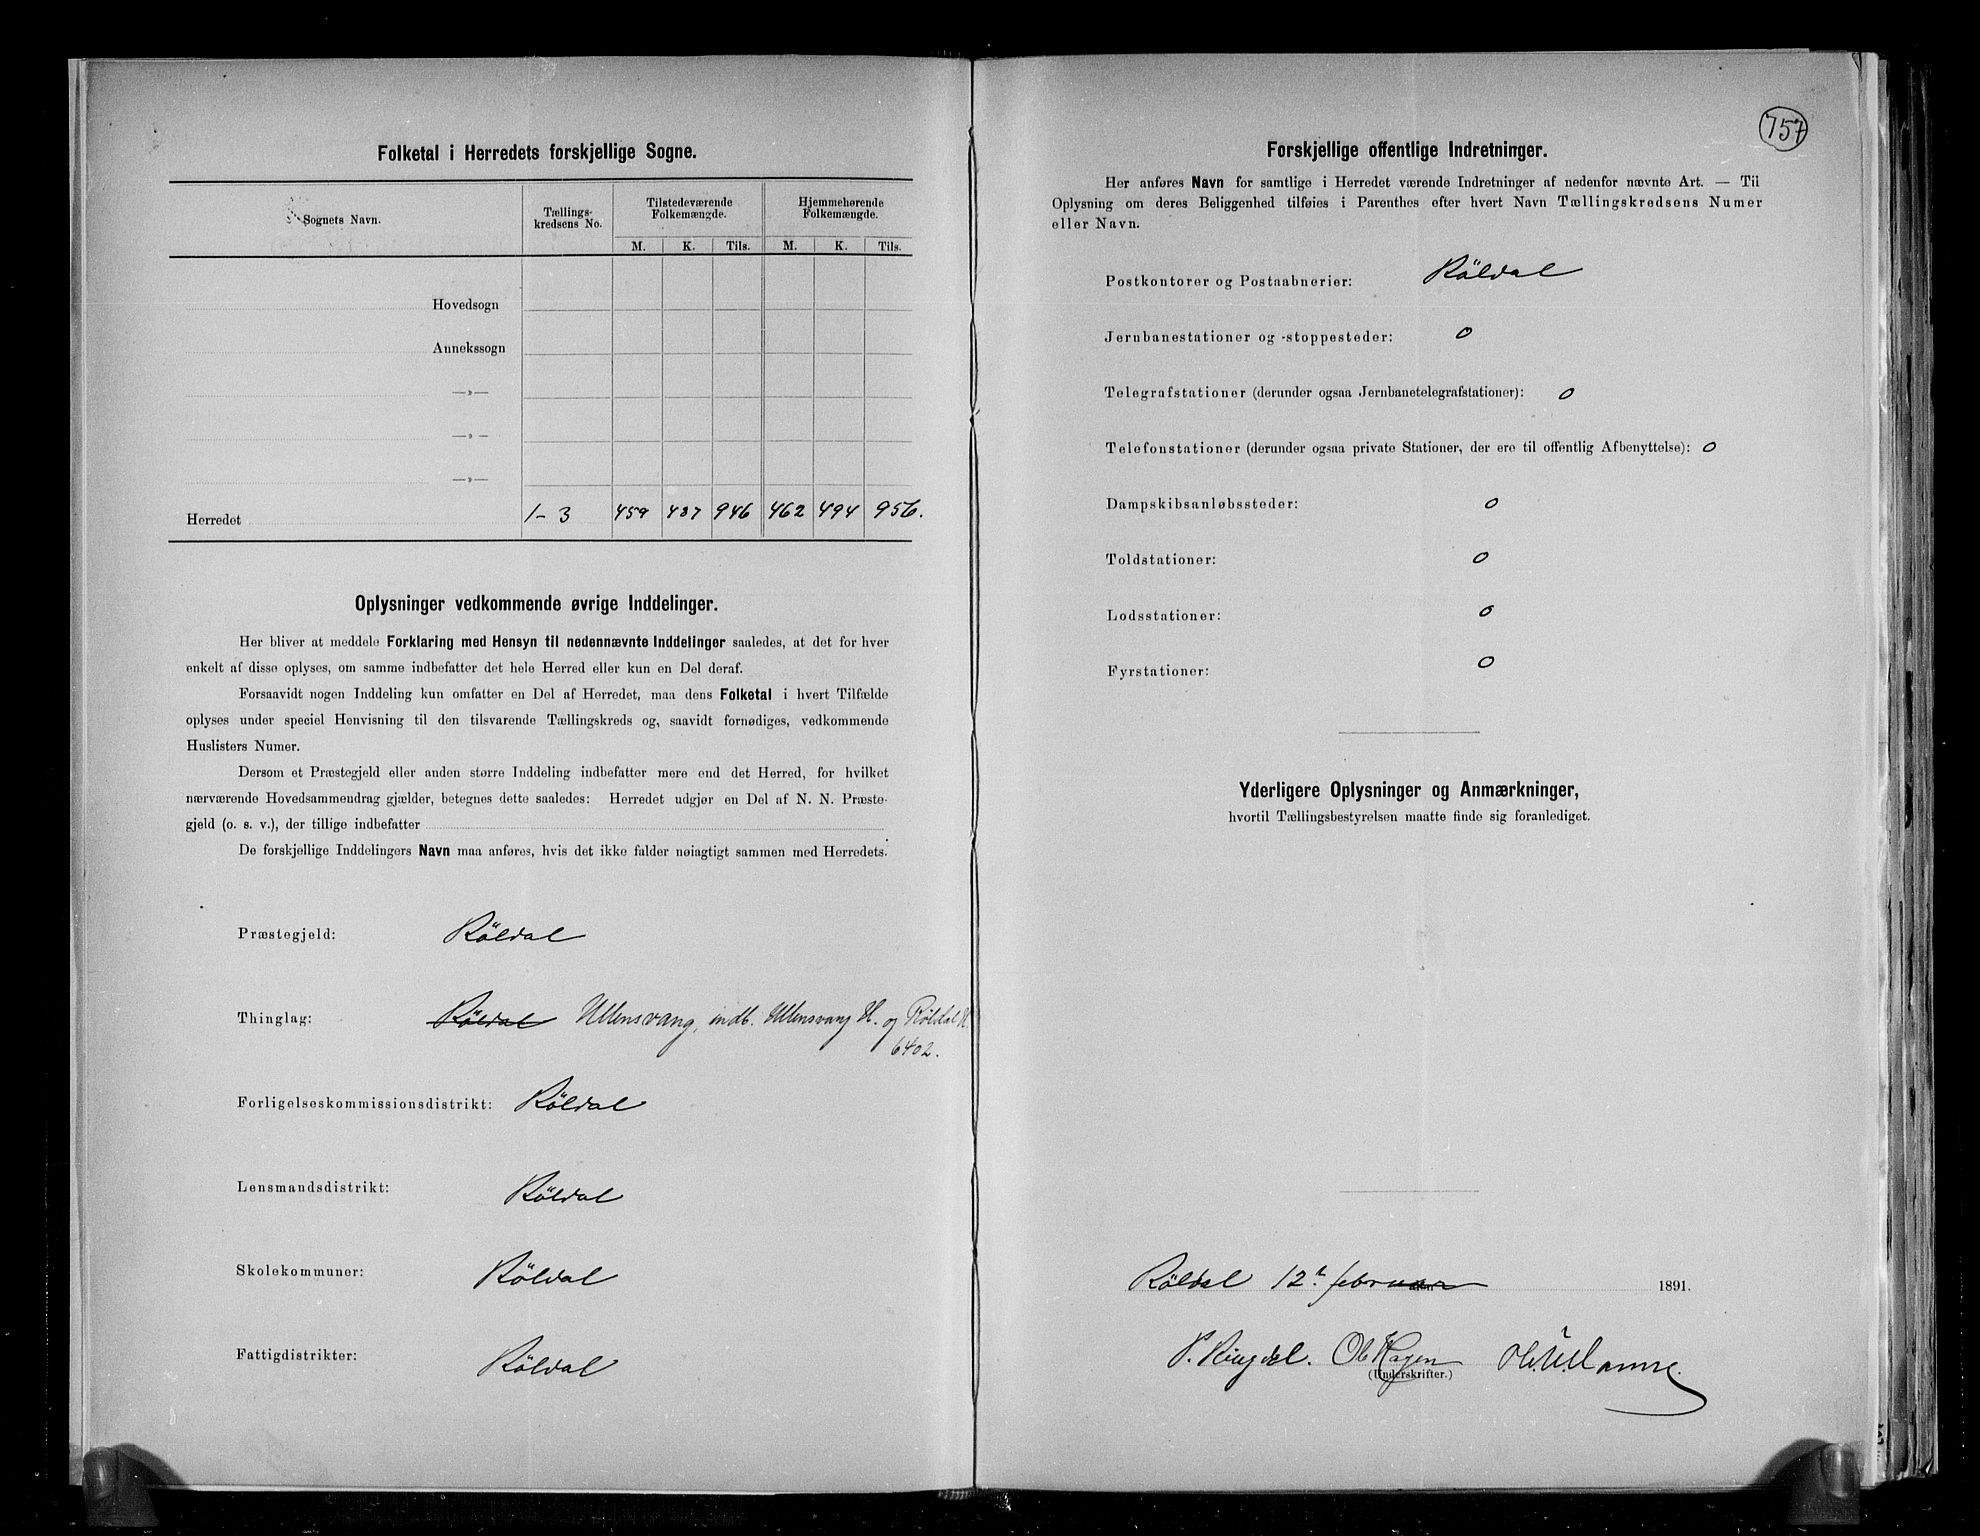 Folketal i Herredets forskjellige Sogne.
Sognets Navn. Tællings-kredsens No. Tilstedeværende Folkemængde. Hjemmehørende Folkemængde.
M. K. Tils. M. K. Tils.
Hovedsogn
Annekssogn
—»—
—»—
—»—
Herredet 1-3 459 487 946 462 494 956.
Oplysninger vedkommende øvrige Inddelinger.
Her bliver at meddele Forklaring med Hensyn til nedennævnte Inddelinger saaledes, at det for hver
enkelt af disse oplyses, om samme indbefatter det hele Herred eller kun en Del deraf.
Forsaavidt nogen Inddeling kun omfatter en Del af Herredet, maa dens Folketal i hvert Tilfælde
oplyses under speciel Henvisning til den tilsvarende Tællingskreds og, saavidt fornødiges, vedkommende
Huslisters Numer.
Dersom et Præstegjeld eller anden større Inddeling indbefatter mere end det Herred, for hvilket
nærværende Hovedsammendrag gjælder, betegnes dette saaledes: Herredet udgjør en Del af N. N. Præste-
gjeld (o. s. v.), der tillige indbefatter
De forskjellige Inddelingers Navn maa anføres, hvis det ikke falder nøiagtigt sammen med Herredets.
Præstegjeld: Röldal
Thinglag: Röldal Ullensvang, indb. Ullensvang H. og Röldal H.
6402.
Forligelseskommissionsdistrikt: Röldal
Lensmandsdistrikt: Röldal
Skolekommuner: Röldal
Fattigdistrikter: Röldal
757
Forskjellige offentlige Indretninger.
Her anføres Navn for samtlige i Herredet værende Indretninger af nedenfor nævnte Art. — Til
Oplysning om deres Beliggenhed tilføies i Parenthes efter hvert Navn Tællingskredsens Numer
eller Navn.
Postkontorer og Postaabnerier: Röldal
Jernbanestationer og -stoppesteder: 0
Telegrafstationer (derunder ogsaa Jernbanetelegrafstationer): 0
Telefonstationer (derunder ogsaa private Stationer, der ere til offentlig Afbenyttelse): 0
Dampskibsanløbssteder: 0
Toldstationer: 0
Lodsstationer: 0
Fyrstationer: 0
Yderligere Oplysninger og Anmærkninger,
hvortil Tællingsbestyrelsen maatte finde sig foranlediget.
Röldal 12. februar 1891.
P. Ringdal. Ole Hagen
(Underskrifter.)